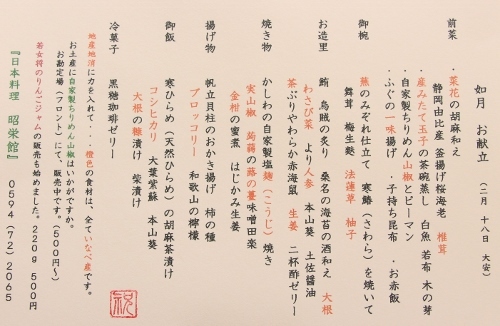 如月 お献立 (二月 十八日 大安)
前菜 ・菜花の胡麻和え
静岡由比産 釜揚げ桜海老 椎茸
・産みたて玉子の茶碗蒸し 白魚 若布 木の芽
・自家製ちりめん山椒とピーマン
・ふぐの一味揚げ ・子持ち昆布 ・お赤飯
御椀 蕪のみぞれ仕立て 寒鰆(さわら)を焼いて
舞茸 梅生麩 法蓮草 柚子
お造里 鮪 烏賊の炙り 桑名の海苔の酒和え 大根
わさび菜 より人参 本山葵 土佐醤油
茶ぶりやわらか赤海鼠 生姜 二杯酢ゼリー
焼き物 かしわの自家製塩麹(こうじ)焼き
実山椒 蒟蒻の蕗の薹味噌田楽
金柑の蜜煮 はじかみ生姜
揚げ物 帆立貝柱のおかき揚げ 柿の種
ブロッコリー 和歌山の檸檬
御飯 寒ひらめ(天然ひらめ)の胡麻茶漬け
コシヒカリ 大葉紫蘇 本山葵
大根の糠漬け 柴漬け
冷菓子 黒糖珈琲ゼリー
地産地消に力を入れて・・橙色の食材は、全ていなべ産です。
お土産に自家製ちりめん山椒はいかがですか。
お勘定場(フロント)にて、販売中です。(500円~)
若女将のりんごジャムの販売も始めました。220g 500円
『日本料理 昭栄館』 0594(72)2065
祝